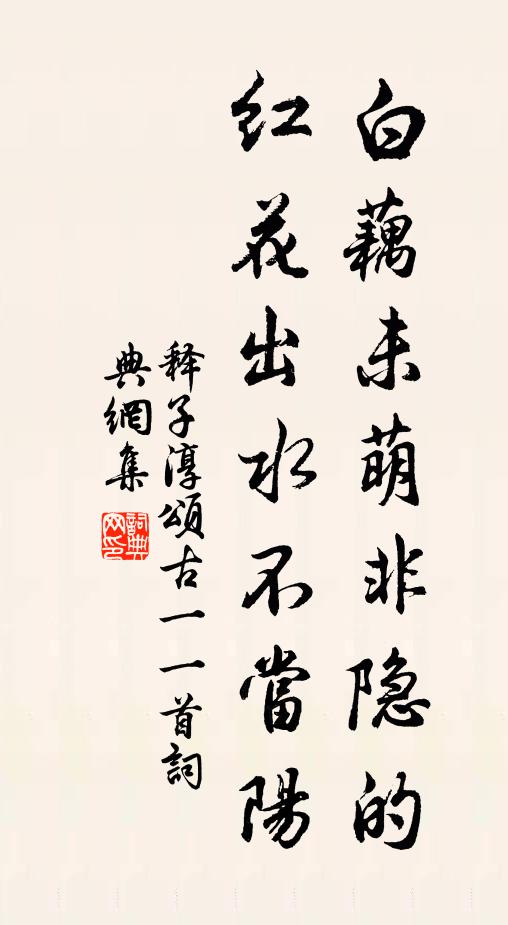 白藕未萌非隐的
红花出水不當陽
释子淳頌古一一首詞
典網集
詞典網印